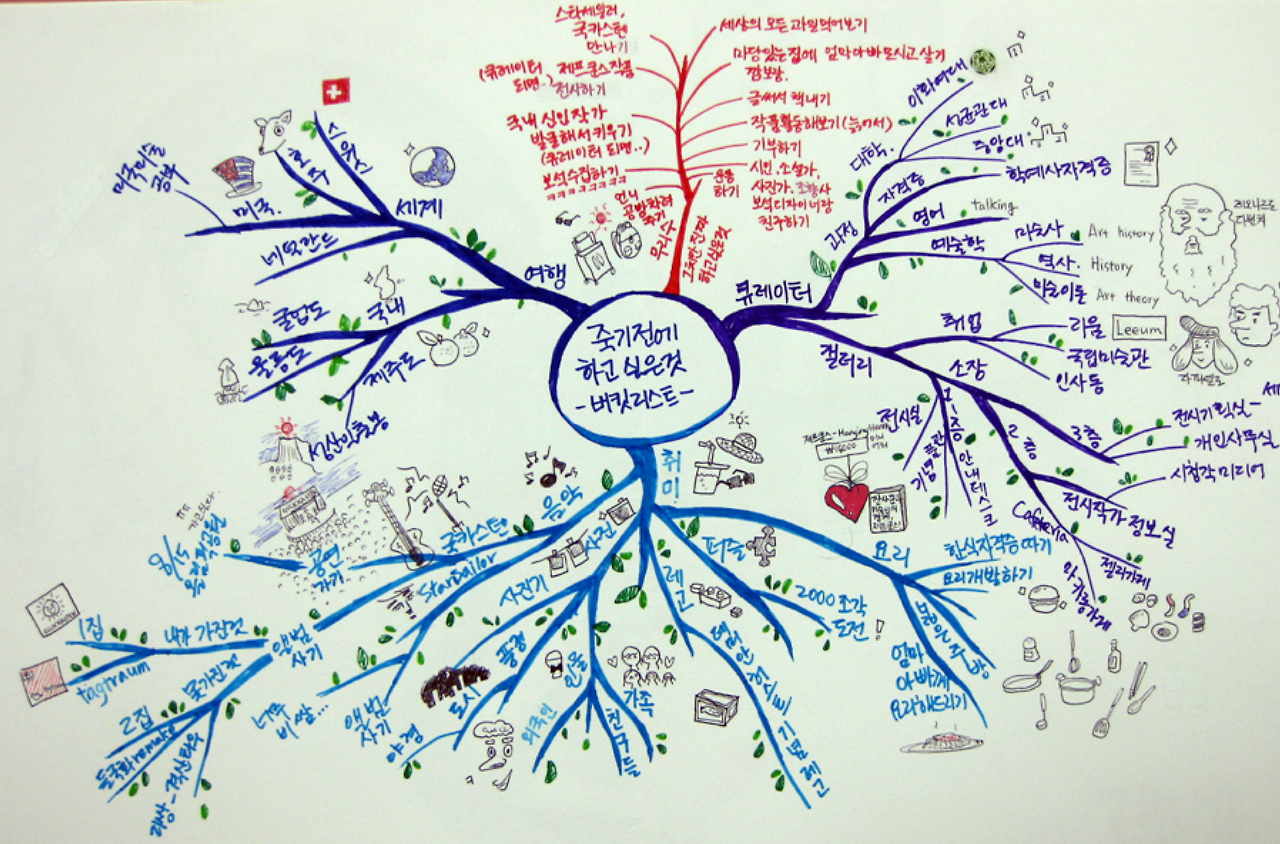 죽기전에
하고 싶은것
-버킷리스트-
스타세일러,
국카스텐
만나기
(큐레이터
되면..)
제프쿤스작품
전시하기
국내 신인작가
발굴해서키우기
(큐레이터 되면..)
보석수집하기
ㅋㅋㅋㅋㅋㅋㅋ
언니
공방차려
주기
세상의 모든 과일먹어보기
마당있는집에 엄마아빠모시고살거
글써서 책내기
작품활동해보기(늙어서)
기부하기
운동
하기
시인, 소설가,
보석디자이너랑
친구하기
하고싶은것
큐레이터
과정
대학.
이화여대
성균관대
중앙대
자격증
학예사자격증
영어
talking
예술학
미술사
Art history
역사.
History
미술이론
Art theory
레오나르도
다빈치
갤러리
취업
리움
Leeum
국립미술관
인사동
소장
전시실
1층
안내데스크
2층
Cafeteria
와플가게
젤라가게
전시작가 정보실
시청각 미디어
3층
전시기획실-
개인사무실
여행
세계
스위스
호주
미국.
미국미술
공부
네덜란드
국내
울릉도
제주도
성산일출봉
취미
음악
국카스텐
공연
가기
8/15
올림픽공원
앨범
사기
내가 가진것
1집
tagtraum
못가진것
2집
Starsailor
앨범
사기
너무
비쌈...
사진
사진기
풍경
도시
야경
인물
외국인
친구들
가족
레고
퍼즐
2000조각
도전!
요리
한식자격증 따기
요리개발하기
엄마
아빠께
요리해드리기